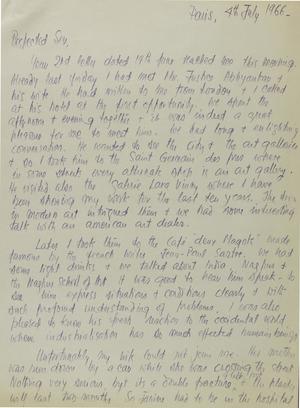 Paris, 4th July 1966.
Respected Sir,
Your 2nd letter dated 19th June reached me this morning.
Already last Friday I had met Mr. Justice Abhyankar &
his wife. He had written to me from London & I called
at his hotel at the first opportunity. We spent the
afternoon & evening together & it was indeed a great
pleasure for me to meet him. We had long & enlighting
conversation. He wanted to see the city & the art galleries
& so I took him to the Saint Germain des pres where
in some streets every alternate shop is an art gallery.
He visited also the "Galerie Lara Vincy" where I have
been showing my work for the last ten years. The
in modern art intrigued them & we had some interesting
talk with an american art dealer.
Later I took them to the Café "deux Magots" made
famous by the french writer Jean-Paul Sartre. We had
some light drinks & we talked about India, Nagpur &
the Nagpur School of Art. It was good to hear him speak & to
see him express situations & conditions clearly & with
such profound understanding of problems. I was also
pleased to know his reaction to the occidental world
where industrialisation has so much effected human beings.
Unfortunately my wife could not join me. Her mother
was run down by a car while she was crossing the street.
Nothing very serious, but its a double fracture. The plaster
will last two months. So Janine had to be in the hospital